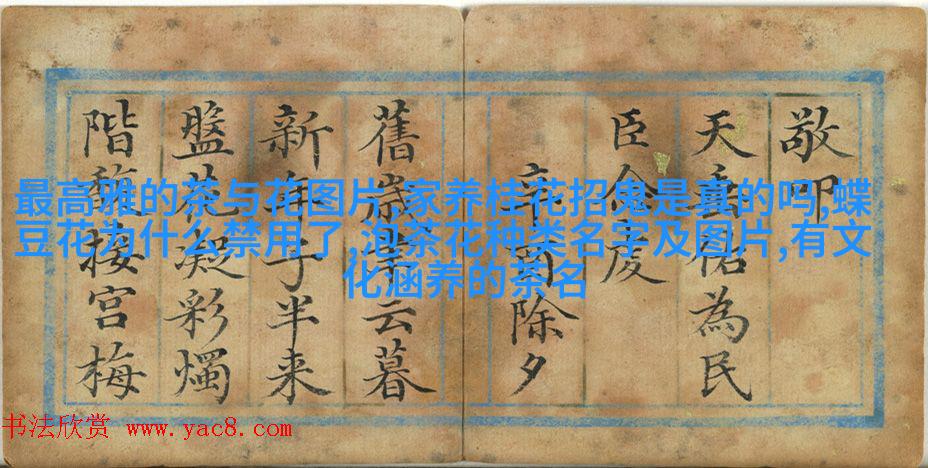 敬叩
天垂佑為民
臣虔
辛酉除夕
舊歲云暮
新年子半来
盤花凝彩燭
階馥接宮梅
最高雅的茶与花图片,家养桂花招鬼是真的吗,蝶
豆花为什么禁用了,泡茶花种类名字及图片,有文
化涵养的茶名
书法欣赏 www.yac8.com